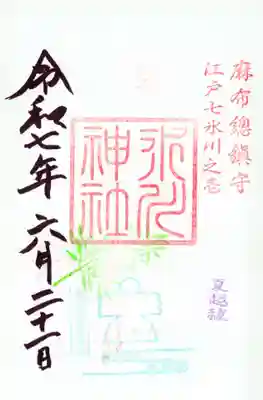 麻布總鎮守
江戸七氷川之壱
氷川神社
夏越祓
令和七年 六月二十一日